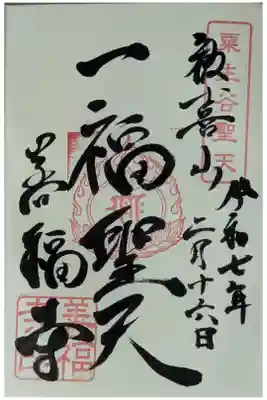 粟生谷聖天
喜山
令和七年
二月十六日
一福聖天
善福寺
善福